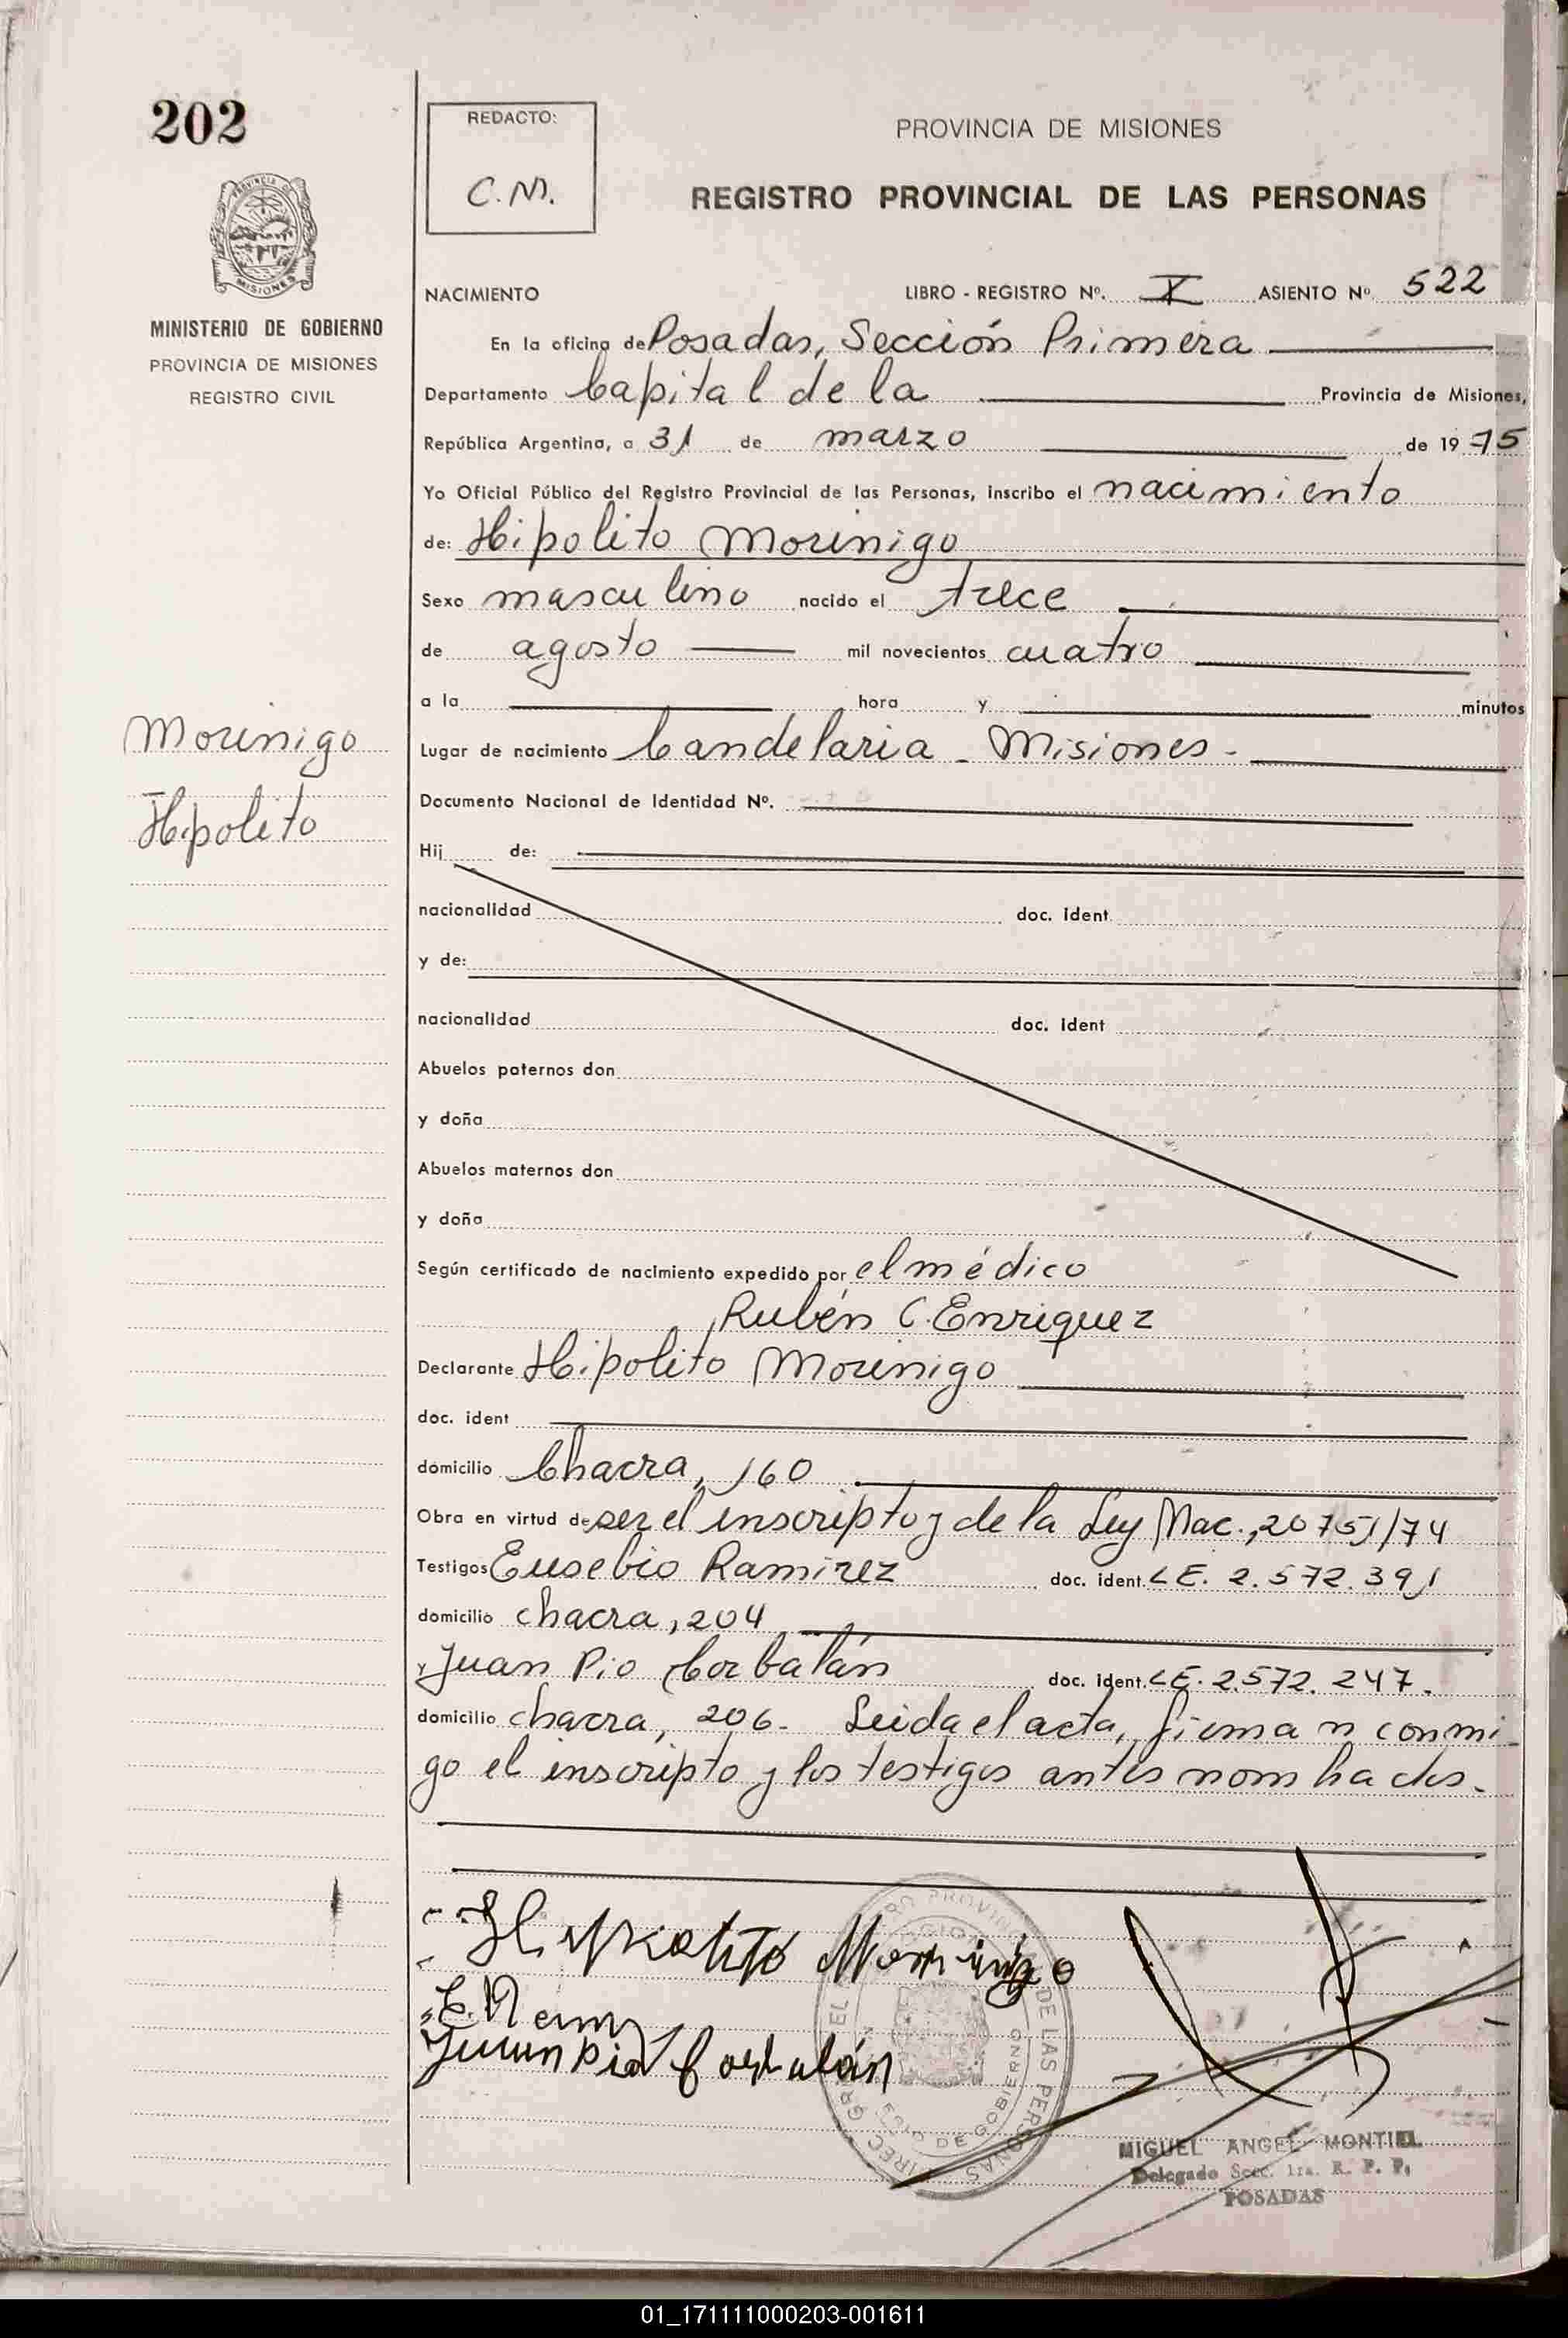 202
REDACTO:
C.M.
PROVINCIA DE MISIONES
REGISTRO PROVINCIAL DE LAS PERSONAS
MISIONES
MINISTERIO DE GOBIERNO
PROVINCIA DE MISIONES
REGISTRO CIVIL
NACIMIENTO LIBRO - REGISTRO Nº. X ASIENTO Nº 522
En la oficina de Posadas, Sección Primera
Departamento Capital de la Provincia de Misiones,
República Argentina, a 31 de marzo de 1975
Yo Oficial Público del Registro Provincial de las Personas, inscribo el nacimiento
de: Hipolito Morinigo
Sexo masculino nacido el trece
de agosto mil novecientos cuatro
a la hora y minutos
Morinigo
Hipolito
Lugar de nacimiento Candelaria - Misiones -
Documento Nacional de Identidad Nº.
Hij de:
nacionalidad doc. ident
y de:
nacionalidad doc. ident
Abuelos paternos don
y doña
Abuelos maternos don
y doña
Según certificado de nacimiento expedido por el médico
Rubén C. Enriquez
Declarante Hipolito Morinigo
doc. ident
domicilio Chacra, 160
Obra en virtud de ser el inscripto y de la Ley Nac., 20751/74
Testigos Eusebio Ramirez doc. ident. LE. 2.572.391
domicilio chacra, 204
y Juan Pio Corbalán doc. ident. LE. 2.572.247.
domicilio chacra, 206. Leida el acta, firman conmi-
go el inscripto y los testigos antes nombrados.
Hipolito Morinigo
Juan Pio Corbalán
DE LAS PERSONAS
DE GOBIERNO
MIGUEL ANGEL MONTIEL
Delegado Secc. 1ra. R. P. P.
POSADAS
01_171111000203-001611